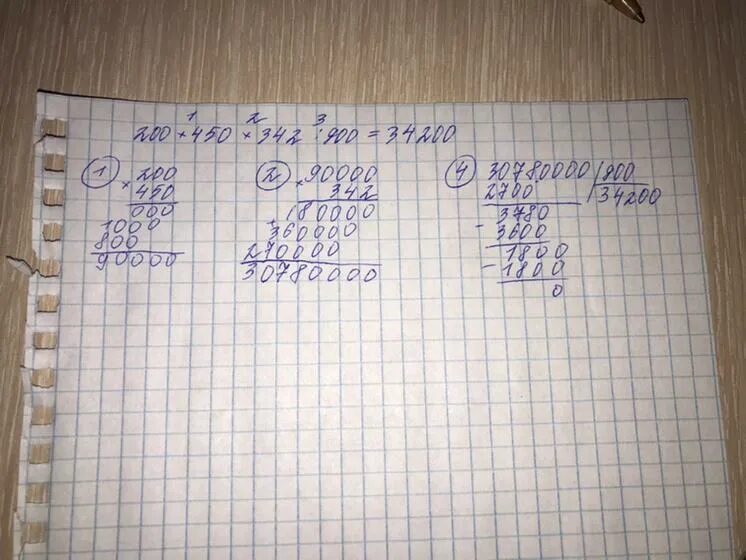 1 2 3
200 × 450 × 342 : 900 = 34200
1
× 200
450
000
1000
800
90000
2
× 90000
342
180000
+ 360000
270000
30780000
4
30780000 | 900
2700 34200
3780
- 3600
1800
- 1800
0